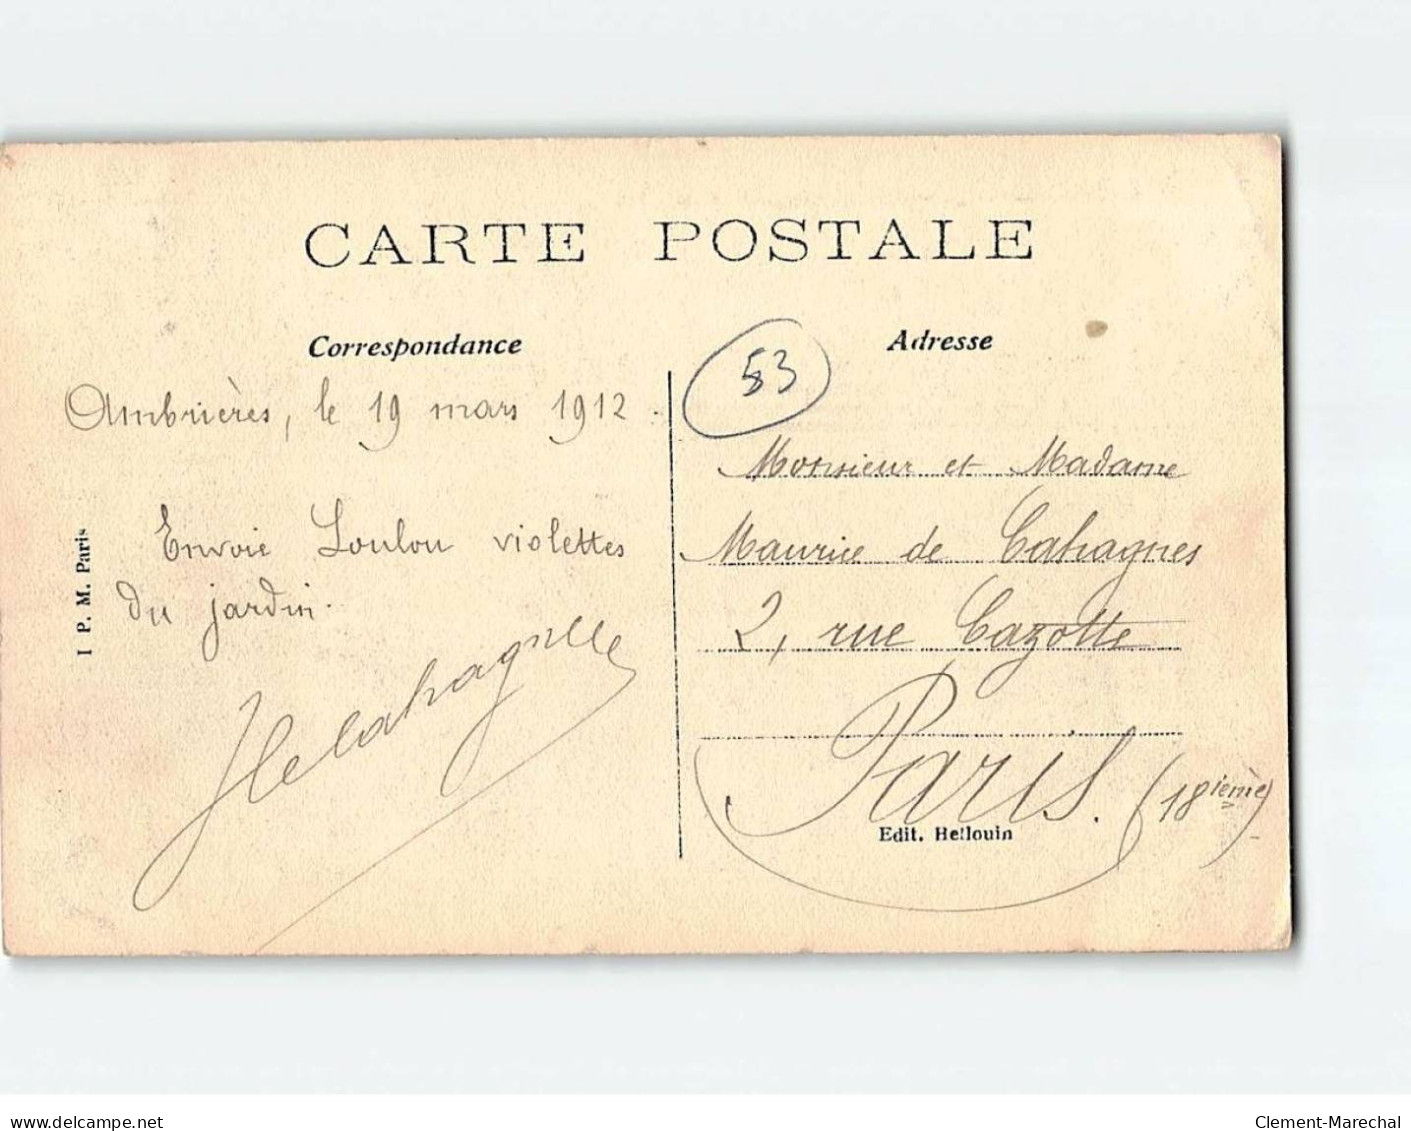 CARTE POSTALE
Correspondance
Adresse
53
Ambrières, le 19 mars 1912.
Envoie Loulou violettes
du jardin.
I P. M. Paris
Monsieur et Madame
Maurice de Cahagnes
2, rue Cazotte
Paris. (18ième)
Edit. Hellouin
delcampe.net
Clement-Marechal